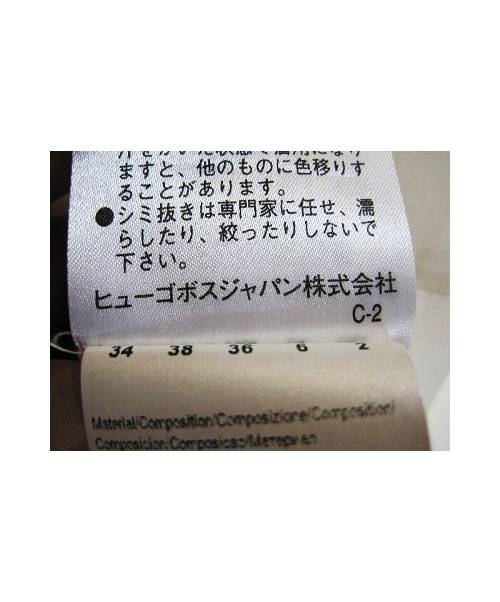 汗をかいた状態で着用になり
ますと、他のものに色移りす
ることがあります。
●シミ抜きは専門家に任せ、濡
らしたり、絞ったりしないで
下さい。
ヒューゴボスジャパン株式会社
C-2
34 38 36 6 2
Material/Composition/Composizione/Composition/
Composicion/Composicao/Материал